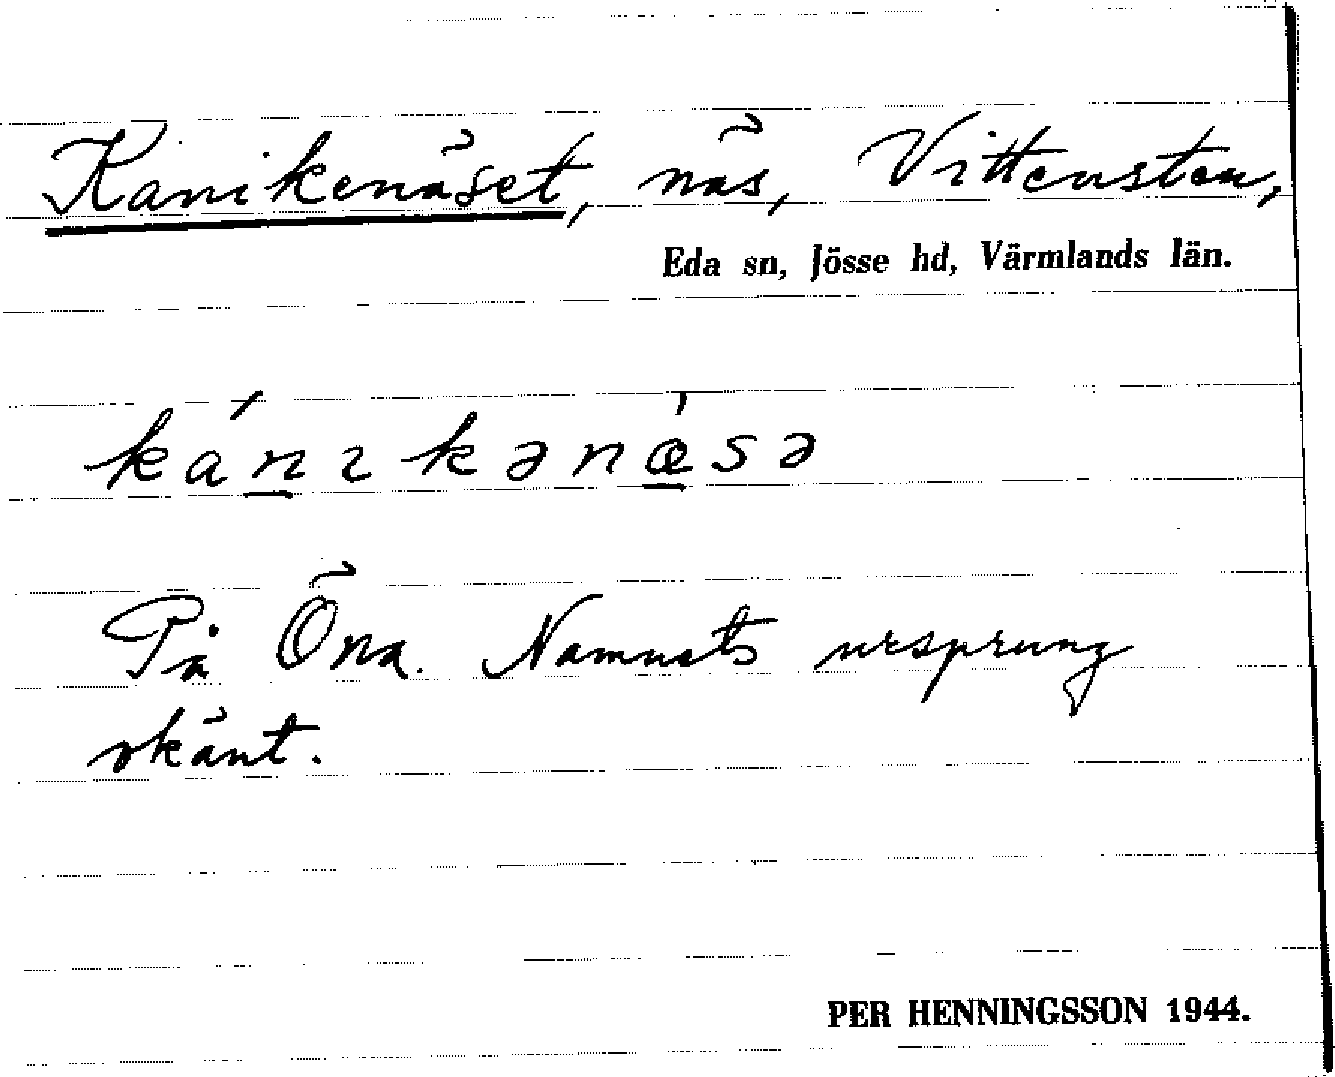 Kanikenäset, näs, Vittensten,
Eda sn, Jösse hd, Värmlands län.
kánɩkənæ̀sə
På Öna. Namnets ursprung
okänt.
PER HENNINGSSON 1944.